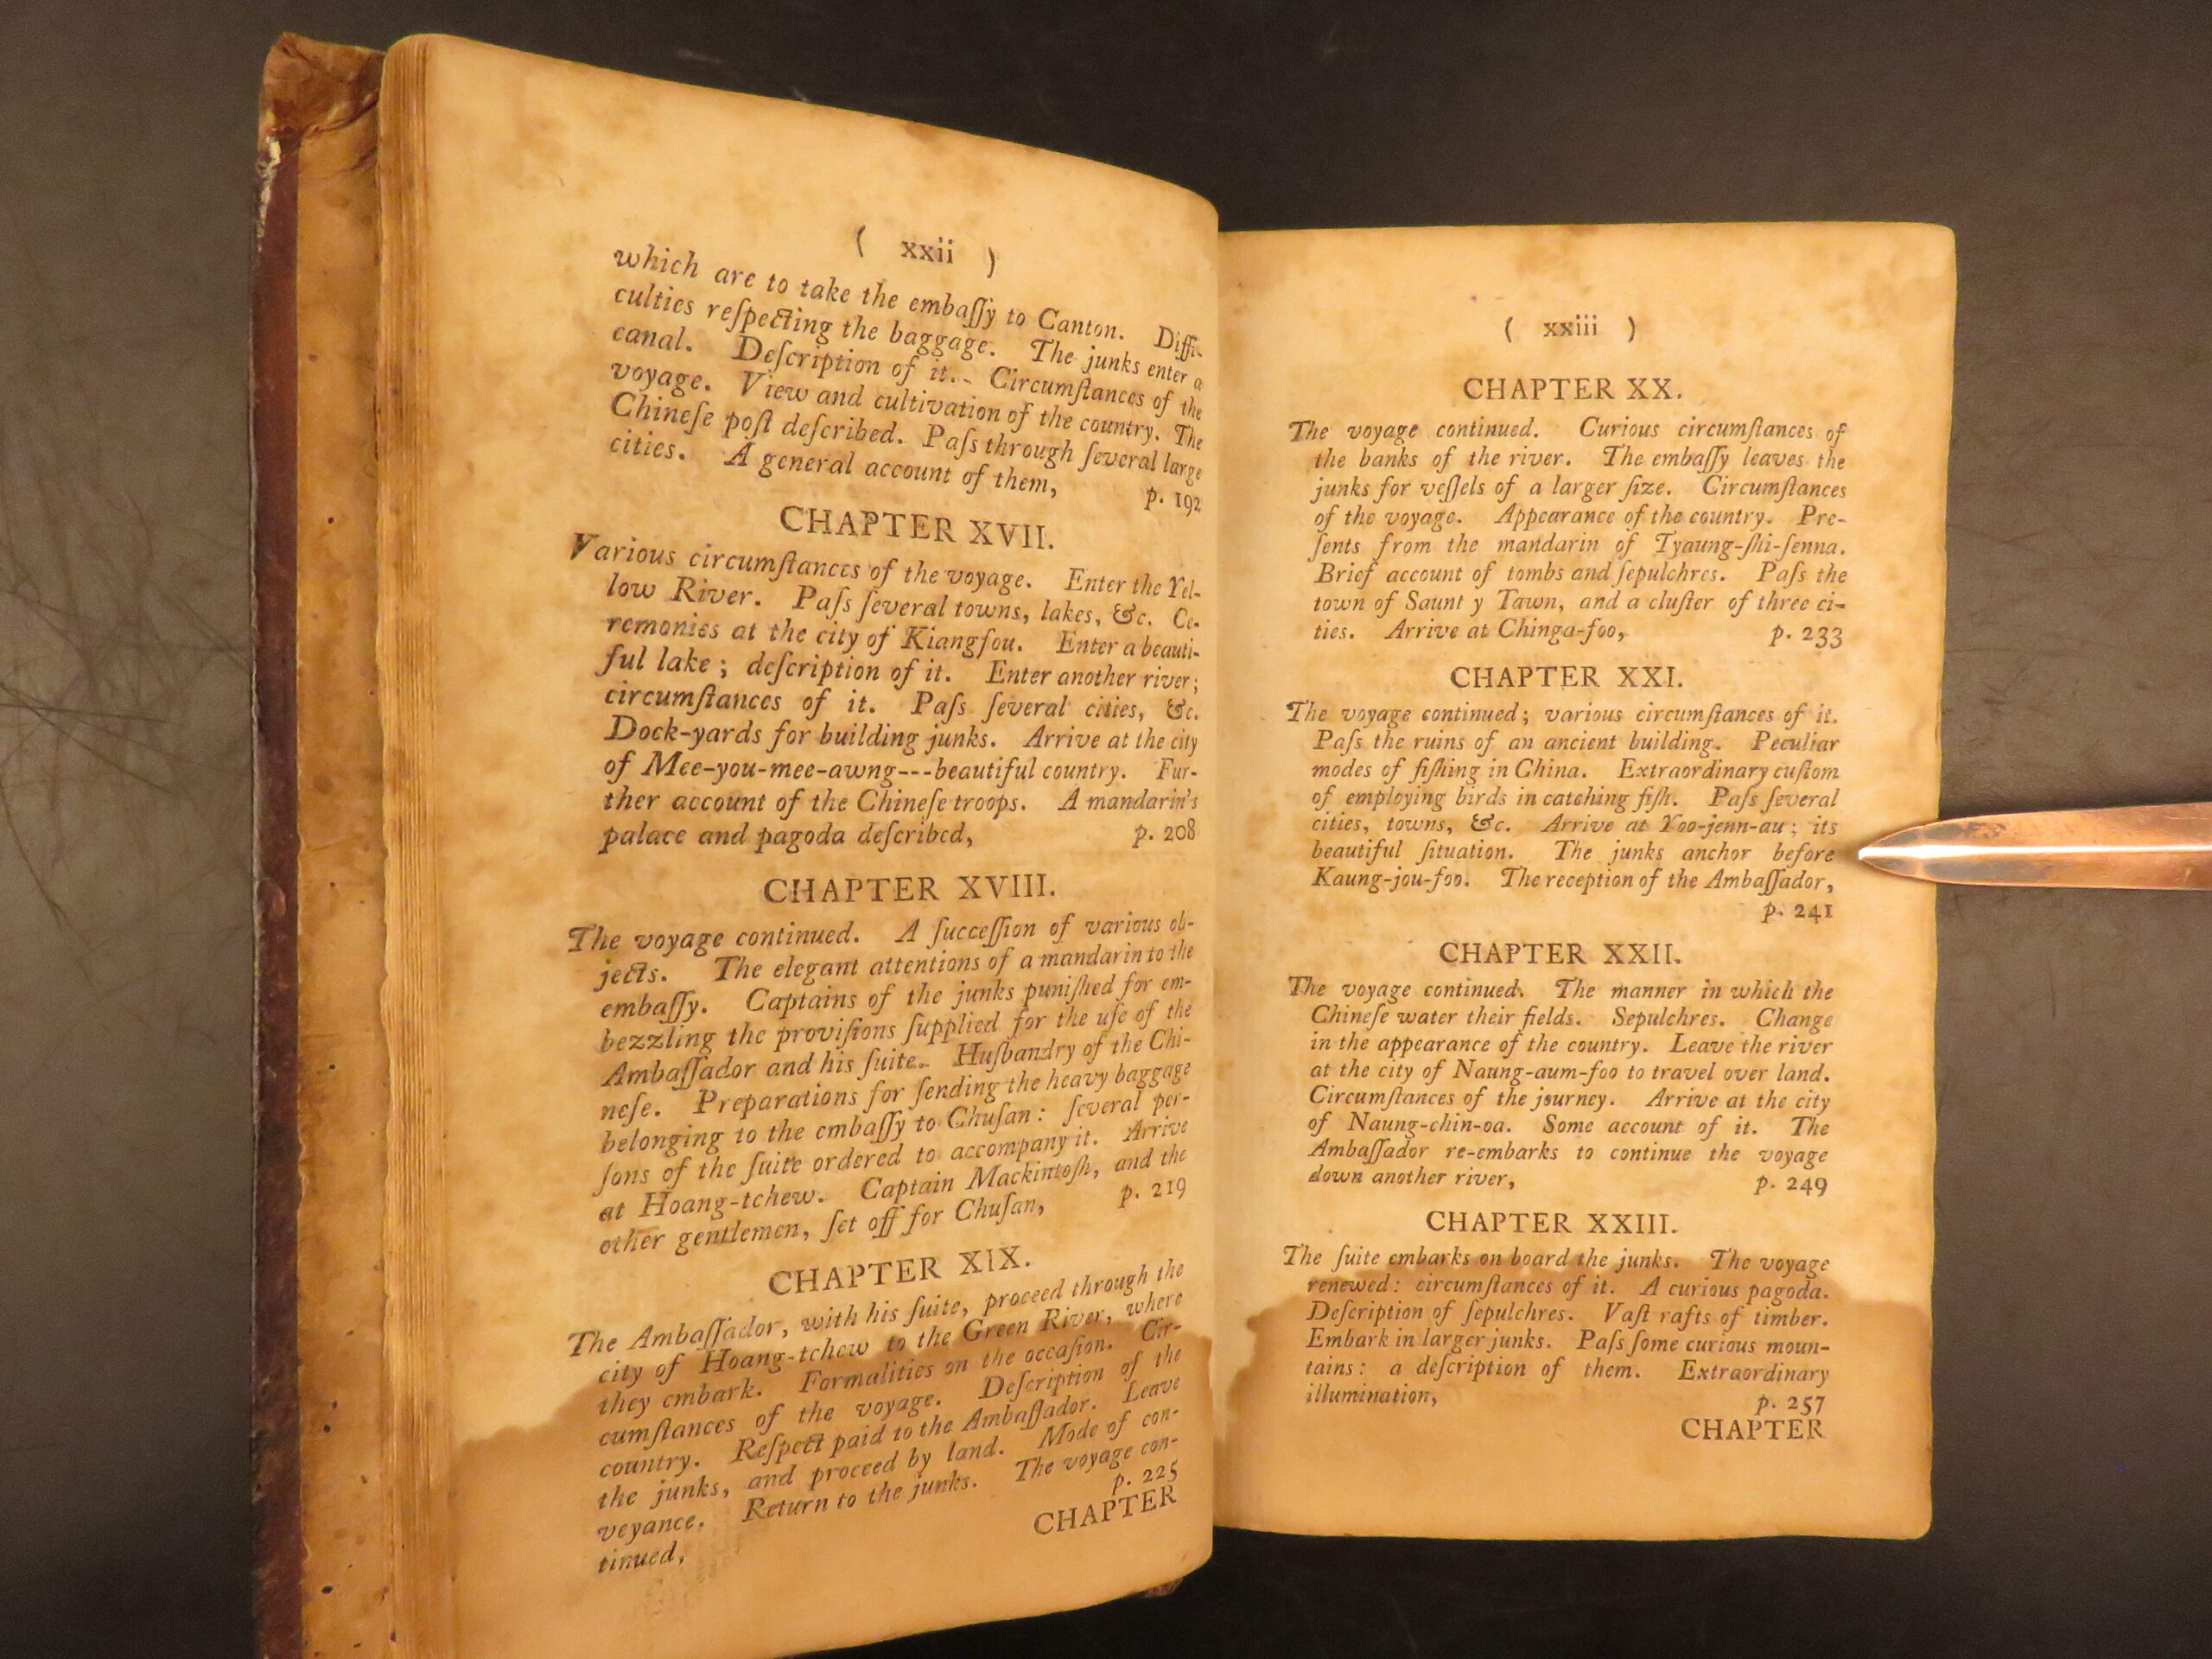 ( xxii )
which are to take the embaſſy to Canton. Diffi-
culties reſpecting the baggage. The junks enter a
canal. Deſcription of it. Circumſtances of the
voyage. View and cultivation of the country. The
Chineſe poſt deſcribed. Paſs through ſeveral large
cities. A general account of them, p. 192
CHAPTER XVII.
Various circumſtances of the voyage. Enter the Yel-
low River. Paſs ſeveral towns, lakes, &c. Ce-
remonies at the city of Kiangſou. Enter a beauti-
ful lake; deſcription of it. Enter another river;
circumſtances of it. Paſs ſeveral cities, &c.
Dock-yards for building junks. Arrive at the city
of Mee-you-mee-awng---beautiful country. Fur-
ther account of the Chineſe troops. A mandarin's
palace and pagoda deſcribed, p. 208
CHAPTER XVIII.
The voyage continued. A ſucceſſion of various ob-
jects. The elegant attentions of a mandarin to the
embaſſy. Captains of the junks puniſhed for em-
bezzling the proviſions ſupplied for the uſe of the
Ambaſſador and his ſuite. Huſbandry of the Chi-
neſe. Preparations for ſending the heavy baggage
belonging to the embaſſy to Chuſan: ſeveral per-
ſons of the ſuite ordered to accompany it. Arrive
at Hoang-tchew. Captain Mackintoſh, and the
other gentlemen, ſet off for Chuſan, p. 219
CHAPTER XIX.
The Ambaſſador, with his ſuite, proceed through the
city of Hoang-tchew to the Green River, where
they embark. Formalities on the occaſion. Cir-
cumſtances of the voyage. Deſcription of the
country. Reſpect paid to the Ambaſſador. Leave
the junks, and proceed by land. Mode of con-
veyance. Return to the junks. The voyage con-
tinued, p. 225
CHAPTER
( xxiii )
CHAPTER XX.
The voyage continued. Curious circumſtances of
the banks of the river. The embaſſy leaves the
junks for veſſels of a larger ſize. Circumſtances
of the voyage. Appearance of the country. Pre-
ſents from the mandarin of Tyaung-ſhi-ſenna.
Brief account of tombs and ſepulchres. Paſs the
town of Saunt y Tawn, and a cluſter of three ci-
ties. Arrive at Chinga-foo, p. 233
CHAPTER XXI.
The voyage continued; various circumſtances of it.
Paſs the ruins of an ancient building. Peculiar
modes of fiſhing in China. Extraordinary cuſtom
of employing birds in catching fiſh. Paſs ſeveral
cities, towns, &c. Arrive at Yoo-jenn-au; its
beautiful ſituation. The junks anchor before
Kaung-jou-foo. The reception of the Ambaſſador,
p. 241
CHAPTER XXII.
The voyage continued. The manner in which the
Chineſe water their fields. Sepulchres. Change
in the appearance of the country. Leave the river
at the city of Naung-aum-foo to travel over land.
Circumſtances of the journey. Arrive at the city
of Naung-chin-oa. Some account of it. The
Ambaſſador re-embarks to continue the voyage
down another river, p. 249
CHAPTER XXIII.
The ſuite embarks on board the junks. The voyage
renewed: circumſtances of it. A curious pagoda.
Deſcription of ſepulchres. Vaſt rafts of timber.
Embark in larger junks. Paſs ſome curious moun-
tains: a deſcription of them. Extraordinary
illumination, p. 257
CHAPTER